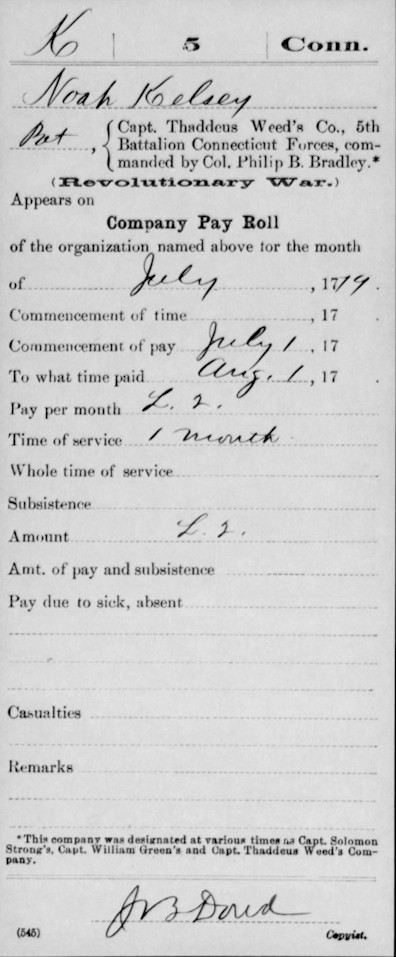 K | 5 | Conn.
Noah Kelsey
Pvt , { Capt. Thaddeus Weed's Co., 5th
Battalion Connecticut Forces, com-
manded by Col. Philip B. Bradley.*
(Revolutionary War.)
Appears on
Company Pay Roll
of the organization named above for the month
of July , 1779 .
Commencement of time , 17 .
Commencement of pay July 1 , 17 .
To what time paid Aug. 1 , 17 .
Pay per month L. 2.
Time of service 1 month
Whole time of service
Subsistence
Amount L. 2.
Amt. of pay and subsistence
Pay due to sick, absent
Casualties
Remarks
*This company was designated at various times as Capt. Solomon
Strong's, Capt. William Green's and Capt. Thaddeus Weed's Com-
pany.
J B Doud
(545) Copyist.